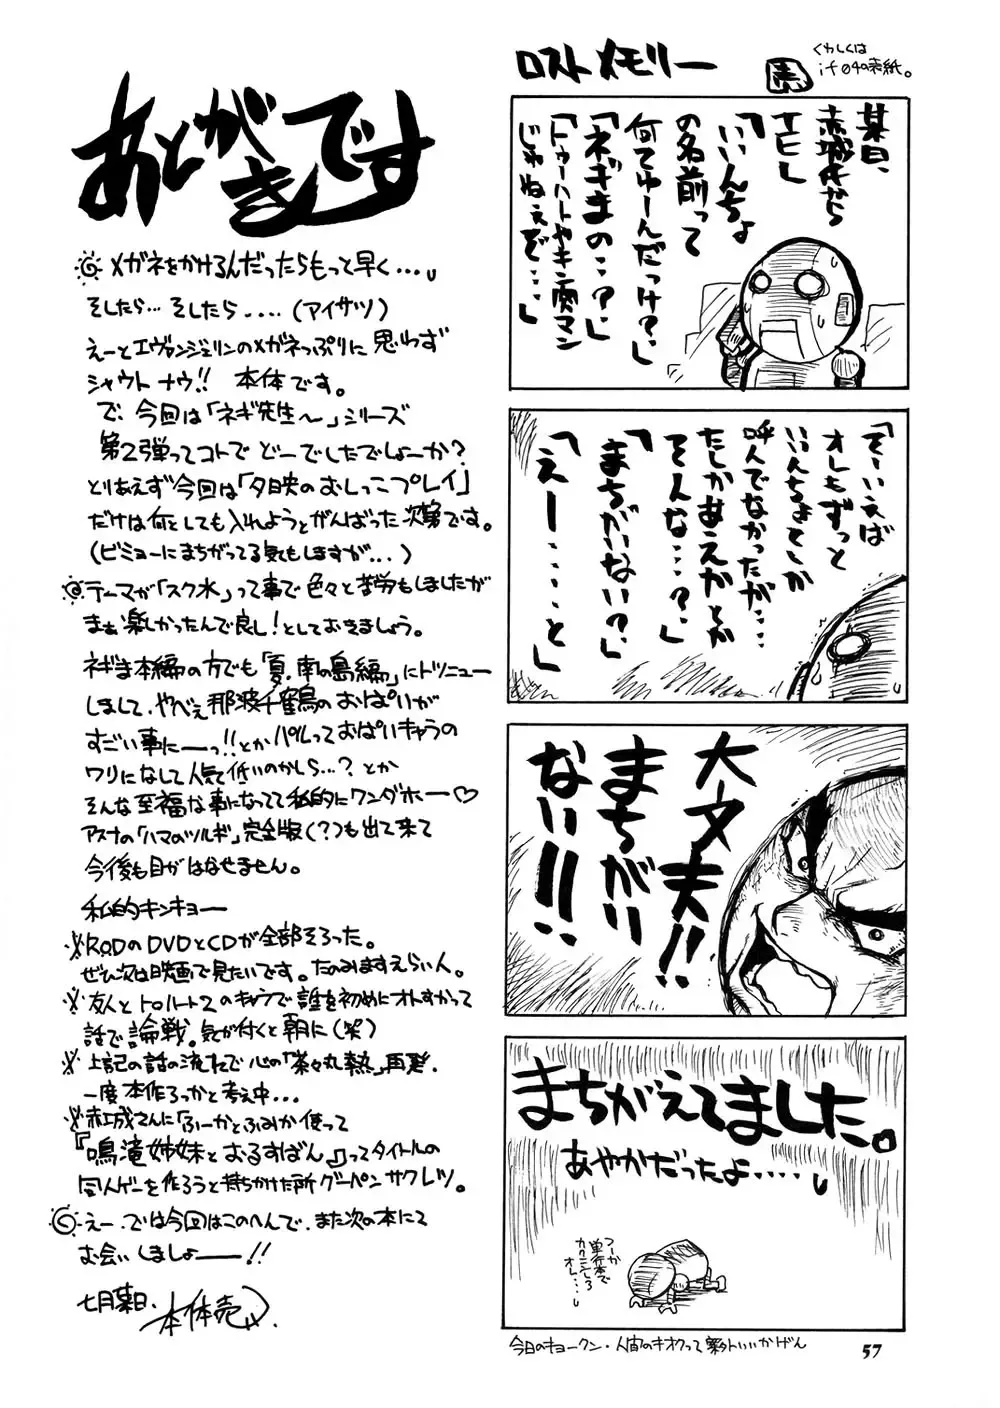 あとがきです
メガネをかけるんだったらもっと早く…。
そしたら…そしたら....(アイサツ)
えーとエヴァンジェリンのメガネっぷりに思わず
シャウトナウ!! 本体です。
で、今回は「ネギ先生〜」シリーズ
第2弾ってコトでどーでしたでしょーか?
とりあえず今回は「夕映のおしっこプレイ」
だけは何としても入れようとがんばった次第です。
(ビミョーにまちがってる気もしますが...)
テーマが「スク水」って事で色々と苦労もしましたが
まぁ楽しかったんで良し!としておきましょう。
ネギま本編の方でも「夏、南の島編」にトツニュー
しまして、やべぇ那波千鶴のおぱいが
すごい事にーっ!!とかパルっておぱいキャラの
ワリになして人気低いのかしら…?とか
そんな至福な事になってて私的にワンダホー♡
アスナの「ハマのツルギ」完全版(?)も出て来て
今後も目がはなせません。
私的キンキョー
RODのDVDとCDが全部そろった。
ぜひ次は映画で見たいです。たのみますえらい人。
友人とトゥハート2のキャラで誰を初めにオトすかって
話で論戦。気が付くと朝に(笑)
上記の話の流れで心の「茶々丸熱」再発。
一度本作ろっかと考え中...
赤城さんに「ふーかとふみか使って
『鳴滝姉妹とおるすばん』」ってタイトルの
同人ゲーを作ろうと持ちかけた所グーパンサクレツ。
えー、では今回はこのへんで、また次の本にて
お会いしましょーーー!!
七月某日、本体売
ロストメモリー
くわしくは
if04の表紙。
某日、
赤城氏から
TELし
「いいんちょ
の名前って
何てゆーんだっけ?」
「ネギまの・・?」
「トゥーハートやキン肉マン
じゃねぇぞ・・」
「そーいえば
オレもずっと
いいんちょてしか
呼んでなかったが・・・・
たしかあえかとか
そんな・・・?」
「まちがいない?」
「えー・・・・と」
大丈夫!!
まちがい
ない!!
まちがえてました。
あやかだったよ・・・・・。
つーか
単行本で
カクニンしろ
オレ・・・。
今日のキョークン・人間のキオクって案外いいかげん
57